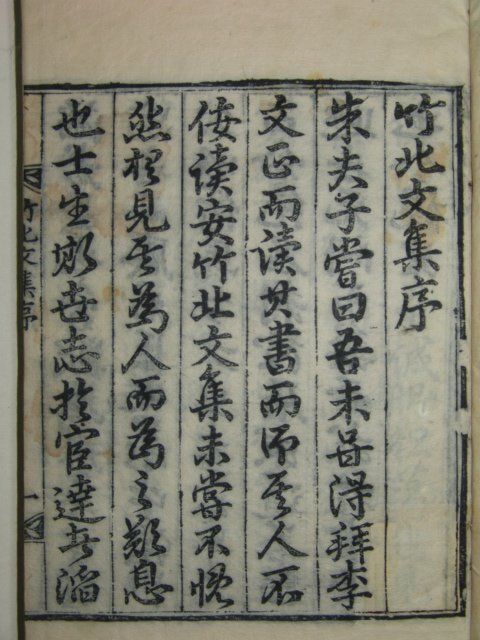 竹北文集序
朱夫子嘗曰吾未得拜李
文正而讀其書而師其人不
佞讀安竹北文集未嘗不慨
然想見其為人而為之歎息
也士生斯世志於宦達者滔
竹北文集序 一